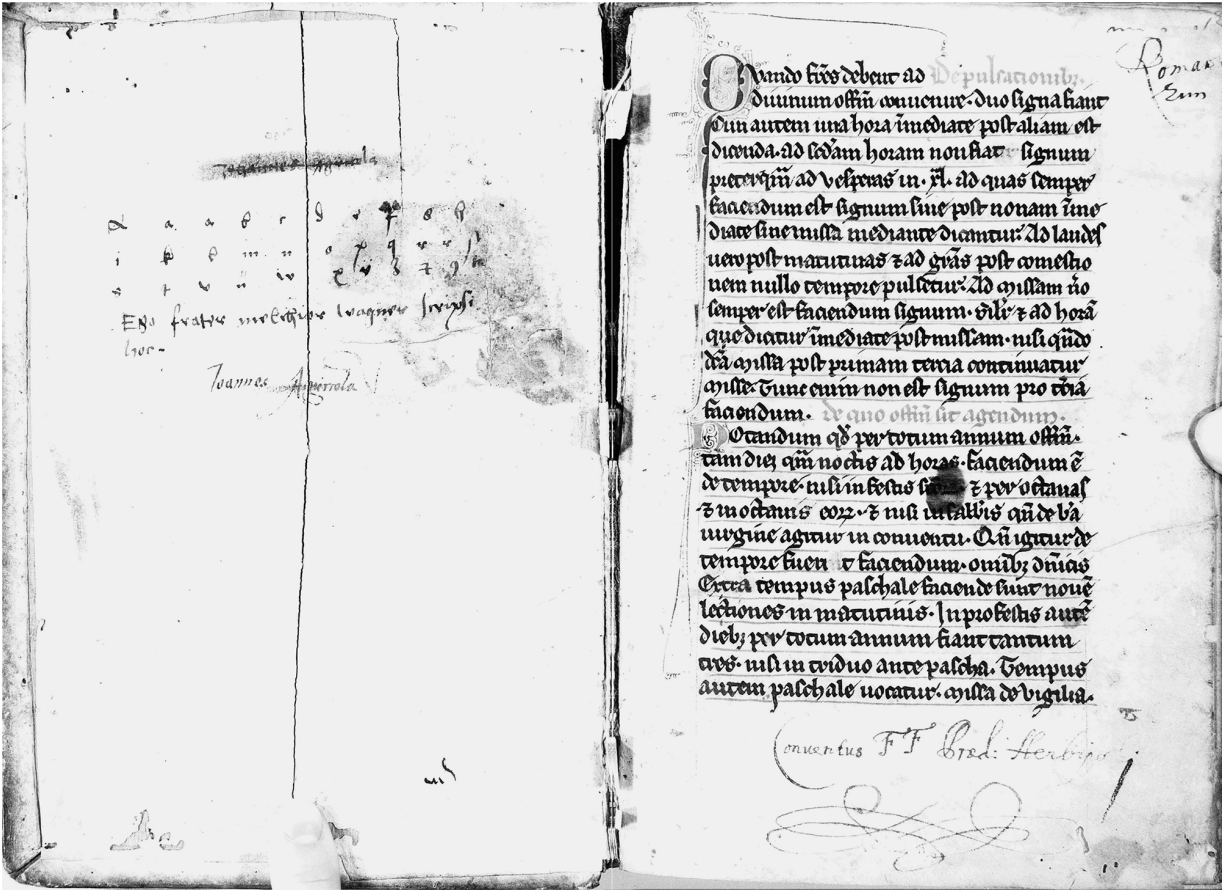 Joannes Agricola
a a b c d e f g h
i k l m n o p q r r s
s t v u w x y z
Ego frater melchior wagner scripsi
hoc.
Joannes Agricola
Roman
Quando fr̄es debent ad De pulsationibꝫ.
diuinum offm̄ conuenire. duo signa fiant
Cum autem una hora īmediate post aliam est
dicenda. ad sc̄dam horam non fiat signum
preterqm̄ ad vesperas in .xl. ad quas semper
faciendum est signum siue post nonam īme
diate siue missa mediante dicantur. Ad laudes
uero post matutinas ⁊ ad gr̄as post comestio
nem nullo tempore pulsetur. Ad missam ūo
semper est faciendum signum. Silr̄ ⁊ ad horā
que dicitur īmediate post missam. nisi qn̄do
dc̄a missa post primam tercia continuatur
misse. Tunc enim non est signum pro t̄cia
faciendum. de quo offm̄ sit agendum.
Notandum qd̄ per totum annum offm̄.
tam diei qm̄ noctis ad horas. faciendum ē
de tempore. nisi in festis ⁊ per octauas
⁊ in octauis eoꝝ. ⁊ nisi in sabb̄is qn̄ de b̄a
uirgine agitur in conuentu. Qn̄ igitur de
tempore fueri t faciendum. omībꝫ dn̄icis
Extra tempus paschale faciende sunt nouē
lectiones in matutinis. In profestis autē
diebꝫ per totum annum fiant tantum
tres. nisi in triduo ante pascha. Tempus
autem paschale uocatur. missa de vigilia.
Conventus FF Præd: Herbipo